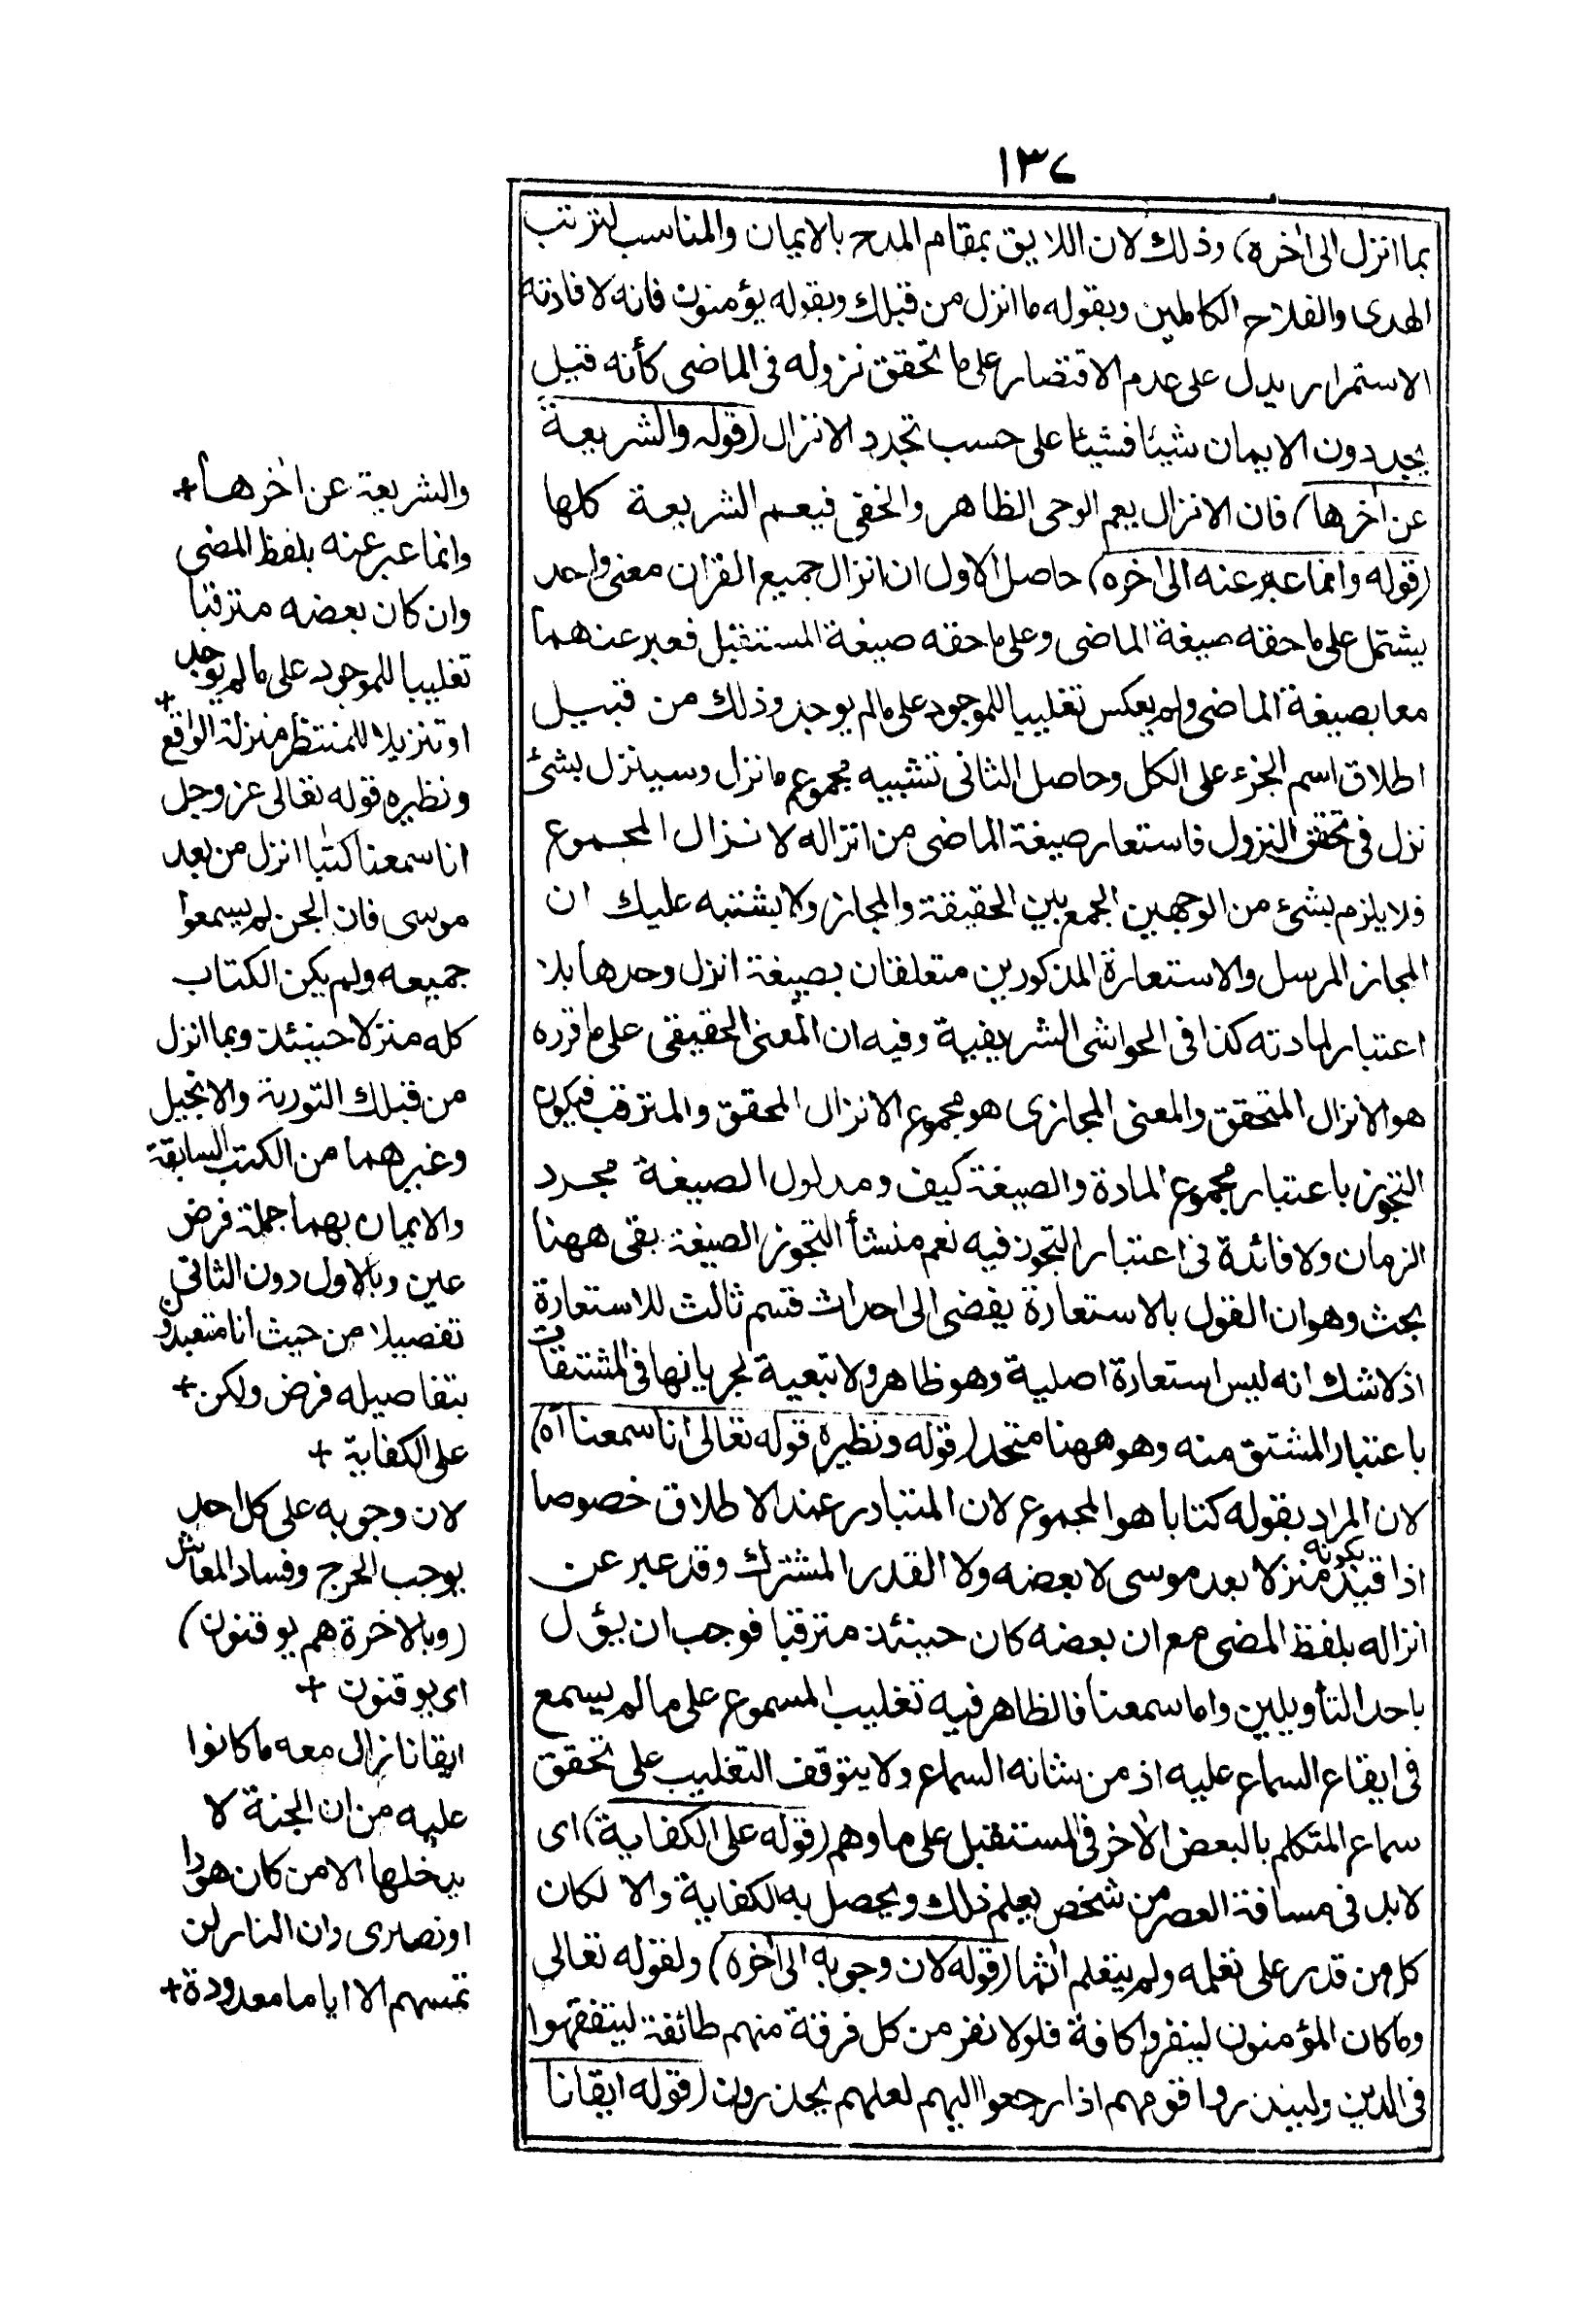 ١٣٧
بما انزل الى اٰخره) وذلك لان اللايق بمقام المدح بالايمان والمناسب لترتب
الهدى والفلاح الكاملين وبقوله ما انزل من قبلك وبقوله يؤمنون فانه لافادته
الاستمرار يدل على عدم الاقتصار على ما تحقق نزوله فى الماضى كأنه قيل
يجددون الايمان شيئا فشيئا على حسب تجدد الانزال (قوله والشريعة
عن اٰخرها) فان الانزال يعم الوحى الظاهر والخفى فيعم الشريعة كلها
(قوله وانما عبر عنه الى اٰخره) حاصل الاول ان انزال جميع القراٰن معنى واحد
يشتمل على ما حقه صيغة الماضى وعلى ما حقه صيغة المستقبل فعبر عنهما
معا بصيغة الماضى ولم يعكس تغليبا للموجود على ما لم يوجد وذلك من قبيل
اطلاق اسم الجزء على الكل وحاصل الثانى تشبيه مجموع ما نزل وسينزل بشئ
نزل فى تحقق النزول فاستعار صيغة الماضى من انزاله لانزال المجموع
فلا يلزم بشئ من الوجهين الجمع بين الحقيقة والمجاز ولا يشتبه عليك ان
المجاز المرسل والاستعارة المذكورين متعلقان بصيغة انزل وحدها بلا
اعتبار لمادته كذا فى الحواشى الشريفية وفيه ان المعنى الحقيقى على ما قرره
هو الانزال المتحقق والمعنى المجازى هو مجموع الانزال المحقق والمترقب فيكون
التجوز باعتبار مجموع المادة والصيغة كيف ومدلول الصيغة مجرد
الزمان ولا فائدة فى اعتبار التجوز فيه نعم منشأ التجوز الصيغة بقى ههنا
بحث وهو ان القول بالاستعارة يفضى الى احداث قسم ثالث للاستعارة
اذ لا شك انه ليس استعارة اصلية وهو ظاهر ولا تبعية لجريانها فى المشتقات
باعتبار المشتق منه وهو ههنا متحد (قوله ونظيره قوله تعالى انا سمعنا اٰه)
لان المراد بقوله كتابا هو المجموع لان المتبادر عند الاطلاق خصوصا
اذا قيد بكونه منزلا بعد موسى لا بعضه ولا القدر المشترك وقد عبر عن
انزاله بلفظ المضى مع ان بعضه كان حينئذ مترقبا فوجب ان يؤل
باحد التأويلين واما سمعنا فالظاهر فيه تغليب المسموع على ما لم يسمع
فى ايقاع السماع عليه اذ من شانه السماع ولا يتوقف التغليب على تحقق
سماع المتكلم بالبعض الاٰخر فى المستقبل على ما وهم (قوله على الكفاية) اى
لابد فى مسافة العصر من شخص يعلم ذلك ويحصل به الكفاية والا لكان
كل من قدر على تعلمه ولم يتعلم اٰثما (قوله لان وجوبه الى اٰخره) ولقوله تعالى
وما كان المؤمنون لينفروا كافة فلولا نفر من كل فرقة منهم طائفة ليتفقهوا
فى الدين ولينذروا قومهم اذا رجعوا اليهم لعلهم يحذرون (قوله ايقانا
والشريعة عن اٰخرها +
وانما عبر عنه بلفظ المضى
وان كان بعضه مترقبا
تغليبا للموجود على ما لم يوجد +
او تنزيلا للمنتظر منزلة الواقع
ونظيره قوله تعالى عز وجل
انا سمعنا كتٰبا انزل من بعد
موسى فان الجن لم يسمعوا
جميعه ولم يكن الكتاب
كله منزلا حينئذ وبما انزل
من قبلك التورية والانجيل
وغيرهما من الكتب السابقة
والايمان بهما جملة فرض
عين وبالاول دون الثانى
تفصيلا من حيث انا متعبدون
بتفاصيله فرض ولكن +
على الكفاية +
لان وجوبه على كل احد
يوجب الحرج وفساد المعاش
(وبالاخرة هم يوقنون)
اى يوقنون +
ايقانا زال معه ما كانوا
عليه من ان الجنة لا
يدخلها الا من كان هودا
او نصٰرى وان النار لن
تمسهم الا اياما معدودة +